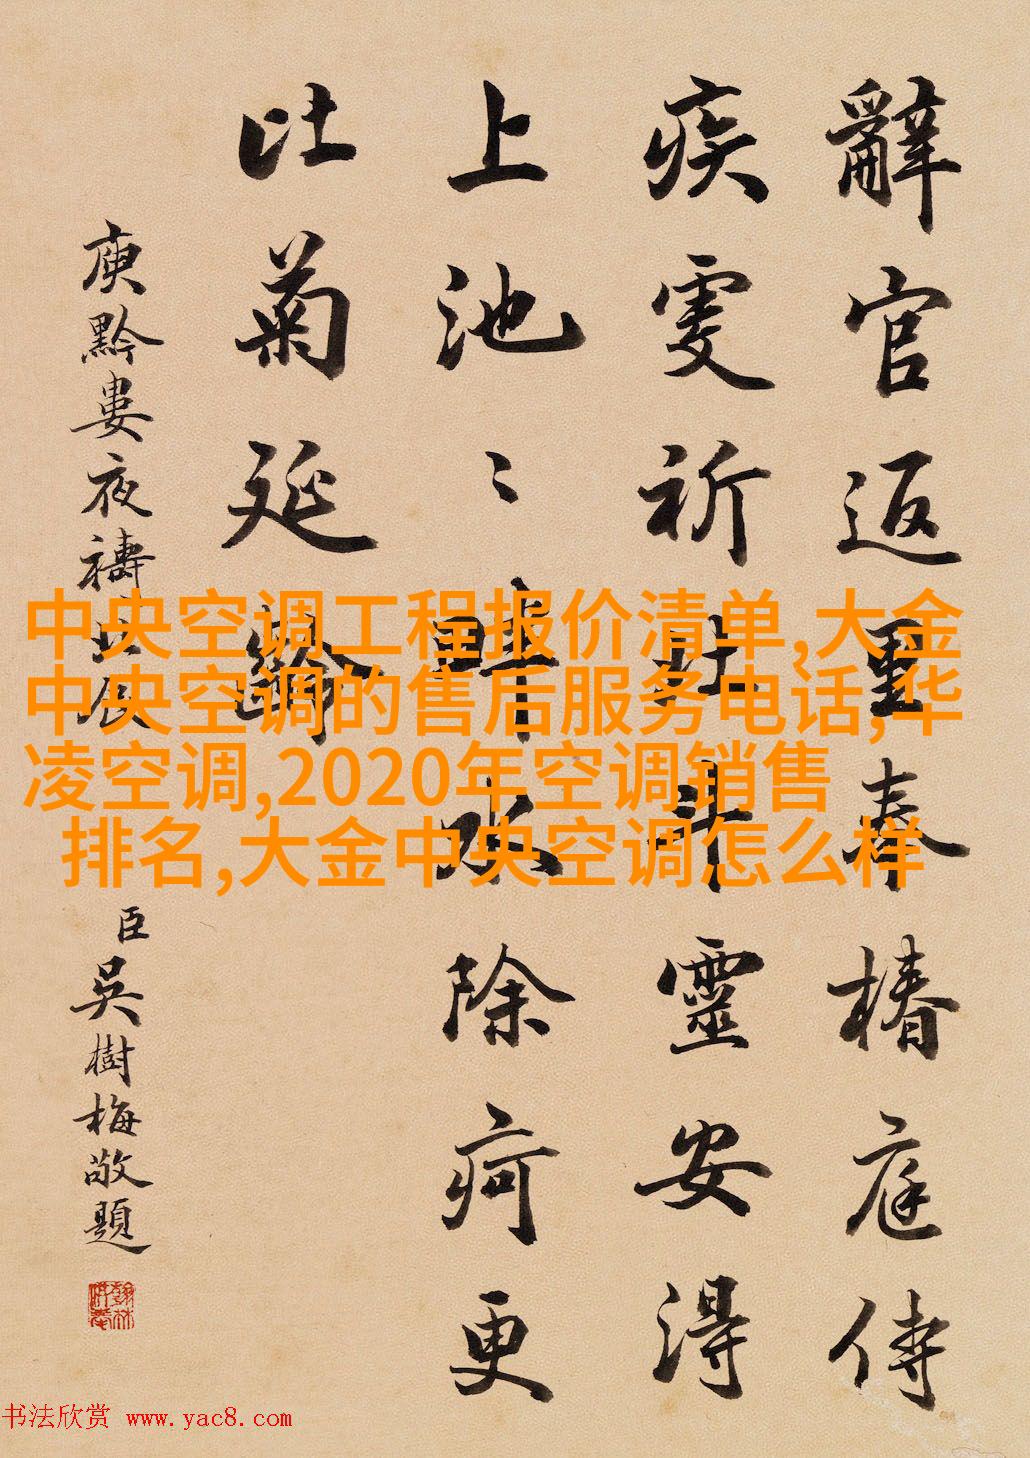 辭官返里奉椿庭侍
疾虔祈北斗靈安得
上池〻畔水除疴更
比菊延齡
庾黔婁夜禱北辰
臣吳樹梅敬題
中央空调工程报价清单,大金
中央空调的售后服务电话,华
凌空调,2020年空调销售
排名,大金中央空调怎么样
书法欣赏 www.yac8.com